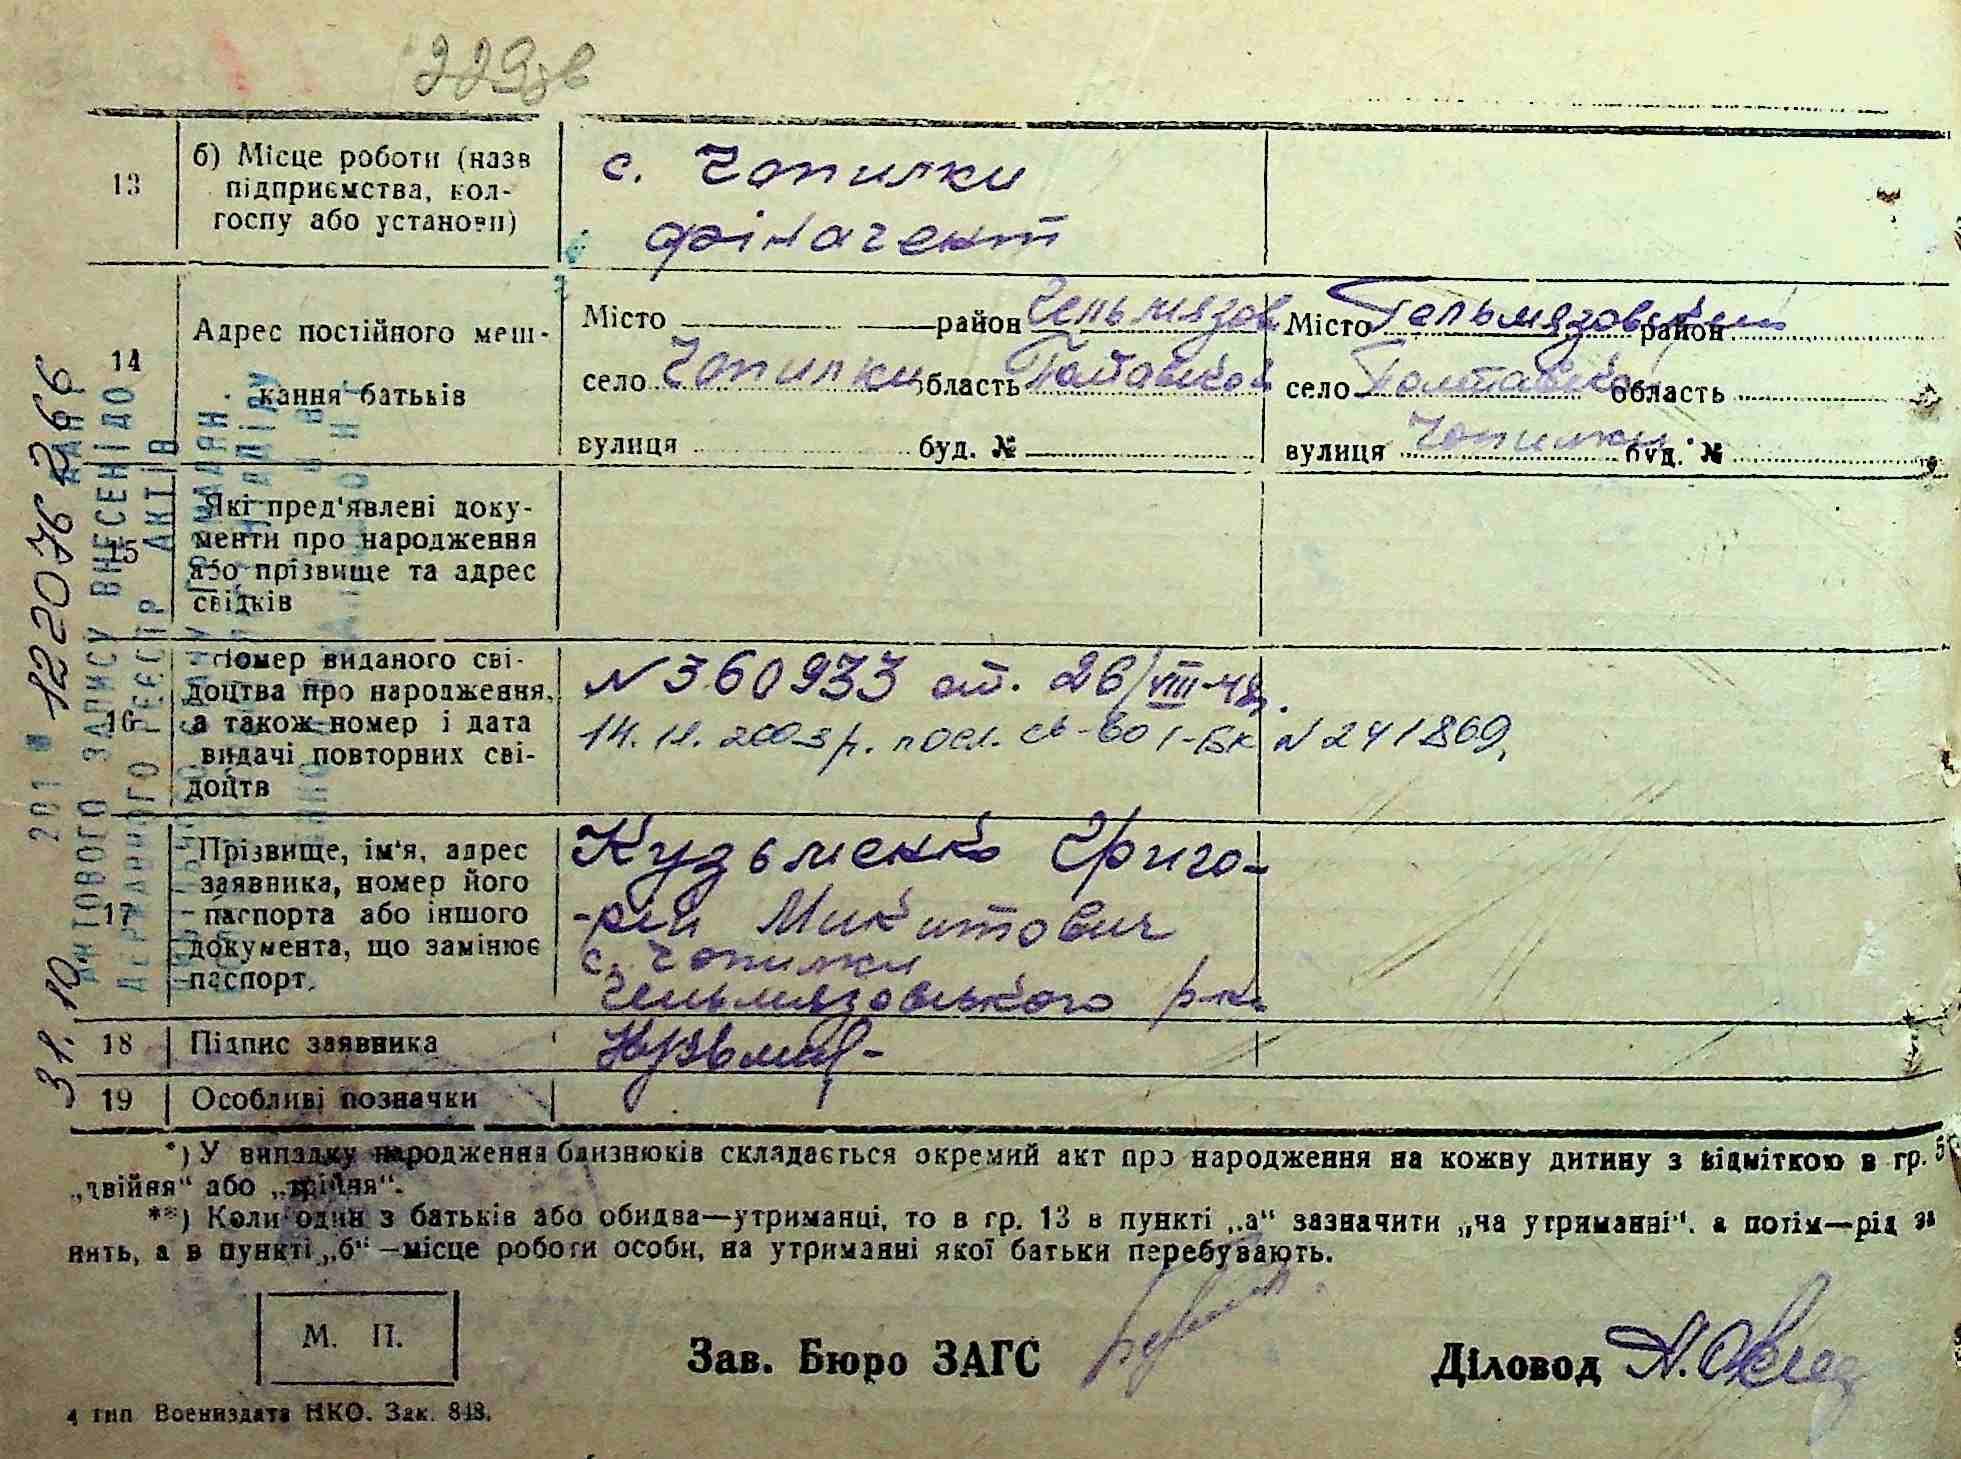 229зв
13
б) Місце роботи (назв
підприємства, кол-
госпу або установи)
с. Чопилки
фінагент
14
Адрес постійного меш-
кання батьків
Місто район Гельмязов
село Чопилки область Полтавської
вулиця буд. №
Місто Гельмязовський район
село Полтавської область
вулиця Чопилки буд. №
15
Які пред'явлені доку-
менти про народження
або прізвище та адрес
свідків
16
Номер виданого сві-
доцтва про народження,
а також номер і дата
видачі повторних сві-
доцтв
N 360933 от. 26/VIII-48.
14.11.2003р. посл. св-во I-БК N 241869,
17
Прізвище, ім'я, адрес
заявника, номер його
паспорта або іншого
документа, що замінює
паспорт.
Кузьменко Григо-
-рій Микитович
с. Чопилки
Гельмязовського р-н.
18
Підпис заявника
19
Особливі позначки
*) У випадку народження близнюків складається окремий акт про народження на кожну дитину з відміткою в гр. 5
„двійня“ або „трійня“.
**) Коли один з батьків або обидва—утриманці, то в гр. 13 в пункті „а“ зазначити „на утриманні“, а потім—рід за
нять, а в пункті „б“—місце роботи особи, на утриманні якої батьки перебувають.
М. П.
Зав. Бюро ЗАГС
Діловод
4 тип Воениздата НКО. Зак. 848.
31.10. 201 122076266
АКТОВОГО ЗАПИСУ ВНЕСЕНІ ДО
ДЕРЖАВНОГО РЕЄСТР АКТІВ
ГРОМАДЯН